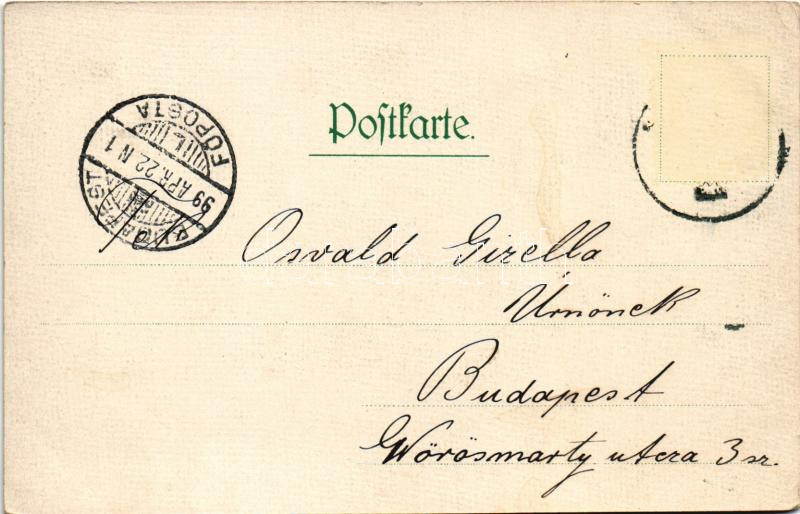 Postkarte.
BUDAPEST
99 APR. 22 N 1
FŐPOSTA
Osvald Gizella
Úrnőnek
Budapest
Wörösmarty utcza 3 sz.